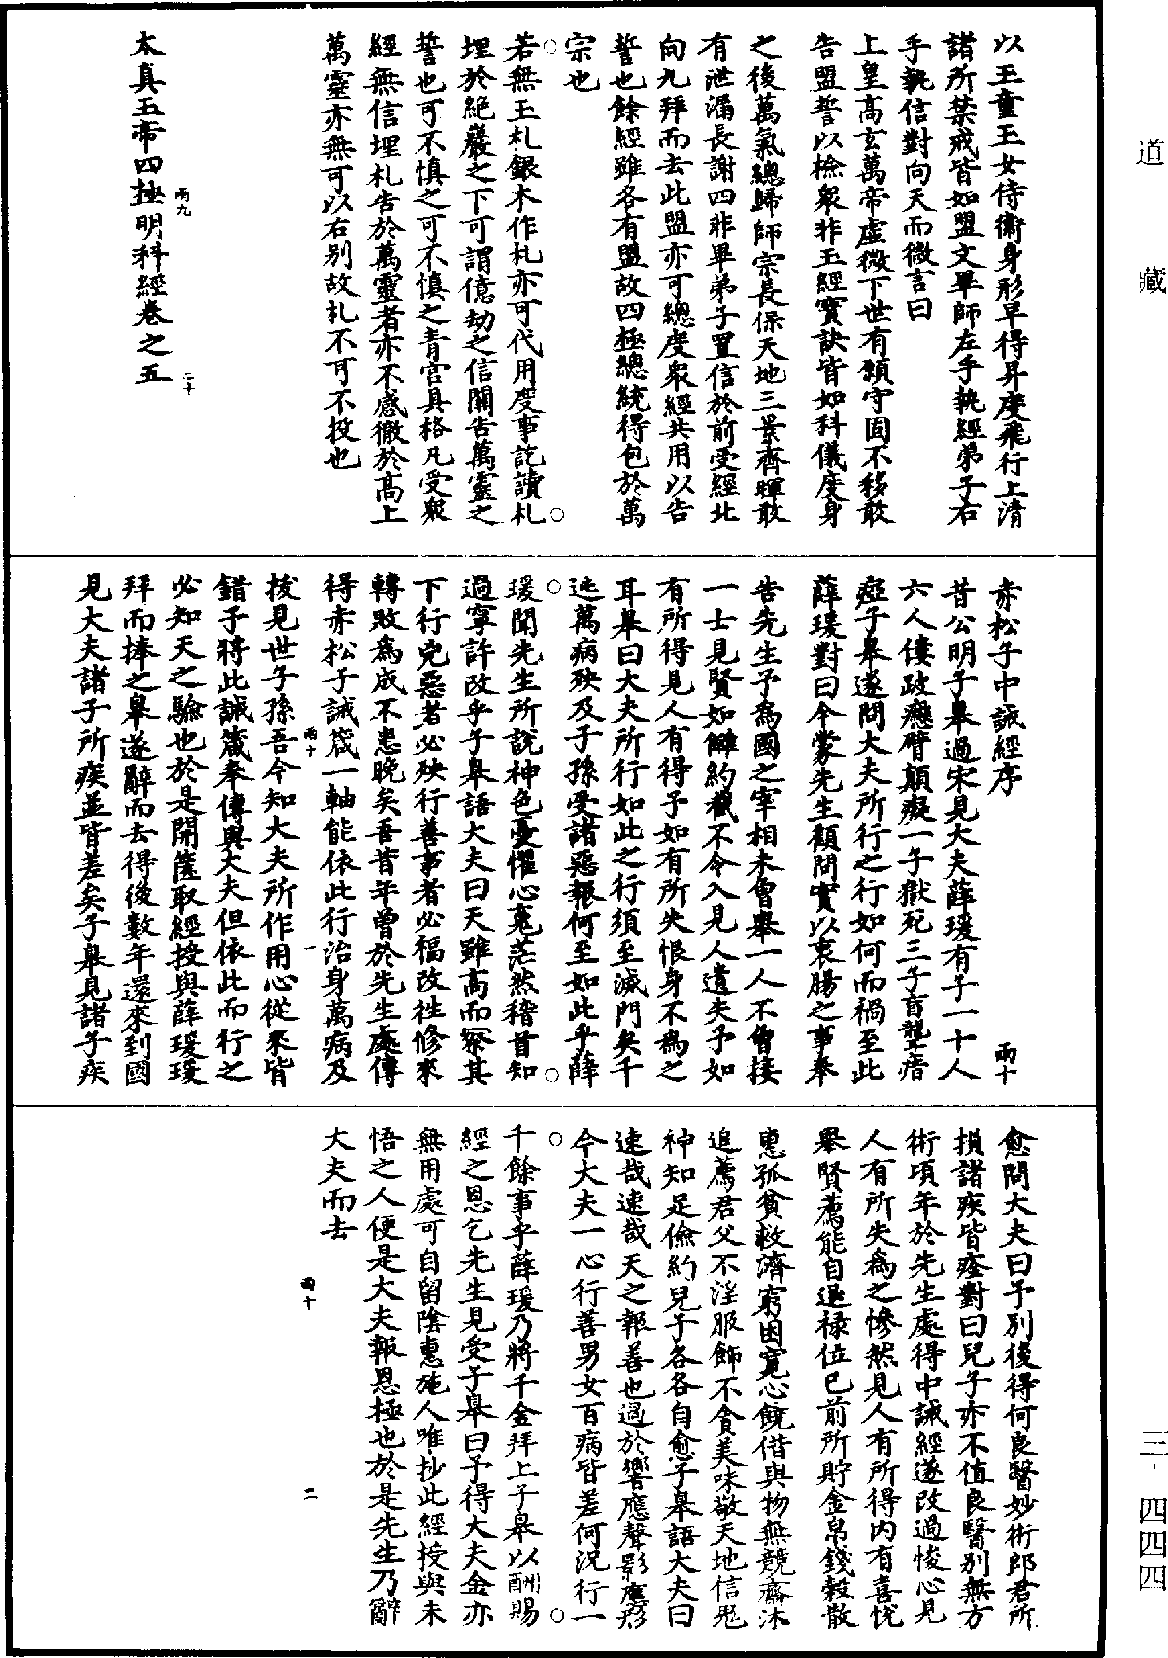 道藏
三·四四四
以玉童玉女侍衛身形早得昇度飛行上清
諸所禁戒皆如盟文畢師左手執經弟子右
手執信對向天而微言曰
上皇高玄萬帝虛微下世有頴守固不移敢
告盟誓以檢衆非玉經寶訣皆如科儀度身
之後萬氣總歸師宗長保天地三景齊暉敢
有泄漏長謝四非畢弟子置信於前受經北
向九拜而去此盟亦可總度衆經共用以告
誓也餘經雖各有盟故四極總統得包於萬
宗也
若無玉札銀木作札亦可代用度事訖讀札
埋於絕巖之下可謂億劫之信關告萬靈之
誓也可不慎之可不慎之青宮具格凡受衆
經無信埋札告於萬靈者亦不感徹於高上
萬靈亦無可以右別故札不可不投也
太真玉帝四極明科經卷之五
兩九
二十
赤松子中誡經序
兩十
昔公明子臯過宋見大夫薛瑗有子一十人
六人僂跛癰臂顛癡一子獄死三子盲聾瘖
瘂子臯遂問大夫所行之行如何而禍至此
薛瑗對曰今蒙先生顧問實以衷腸之事奉
告先生予為國之宰相未曾舉一人不曾接
一士見賢如讎約截不令入見人遺失予如
有所得見人有得予如有所失恨身不為之
耳臯曰大夫所行如此之行須至滅門矣千
迍萬病殃及子孫受諸惡報何至如此乎薛
瑗聞先生所說神色憂懼心寃茫然稽首知
過寧許改乎子臯語大夫曰天雖高而察其
下行兇惡者必殃行善事者必福改往修來
轉敗為成不患晚矣吾昔年曾於先生處傳
得赤松子誡箴一軸能依此行治身萬病及
兩十
一
拔見世子孫吾今知大夫所作用心從來皆
錯予將此誡箴奉傳與大夫但依此而行之
必知天之驗也於是開篋取經授與薛瑗瑗
拜而捧之臯遂辭而去得後數年還來到國
見大夫諸子所疾並皆差矣子臯見諸子疾
愈問大夫曰予別後得何良醫妙術郎君所
損諸疾皆痊對曰兒子亦不值良醫別無方
術頃年於先生處得中誡經遂改過悛心見
人有所失為之慘然見人有所得內有喜悅
舉賢薦能自退祿位已前所貯金帛錢穀散
惠孤貧救濟窮困寬心饒借與物無競齋沐
追薦君父不淫服飾不貪美味敬天地信鬼
神知足儉約兒子各各自愈子臯語大夫曰
速哉速哉天之報善也過於響應聲影應形
今大夫一心行善男女百病皆差何況行一
千餘事乎薛瑗乃將千金拜上子臯以酬賜
經之恩乞先生見受子臯曰予得大夫金亦
無用處可自留陰惠施人唯抄此經授與未
悟之人便是大夫報恩極也於是先生乃辭
大夫而去
兩十
二